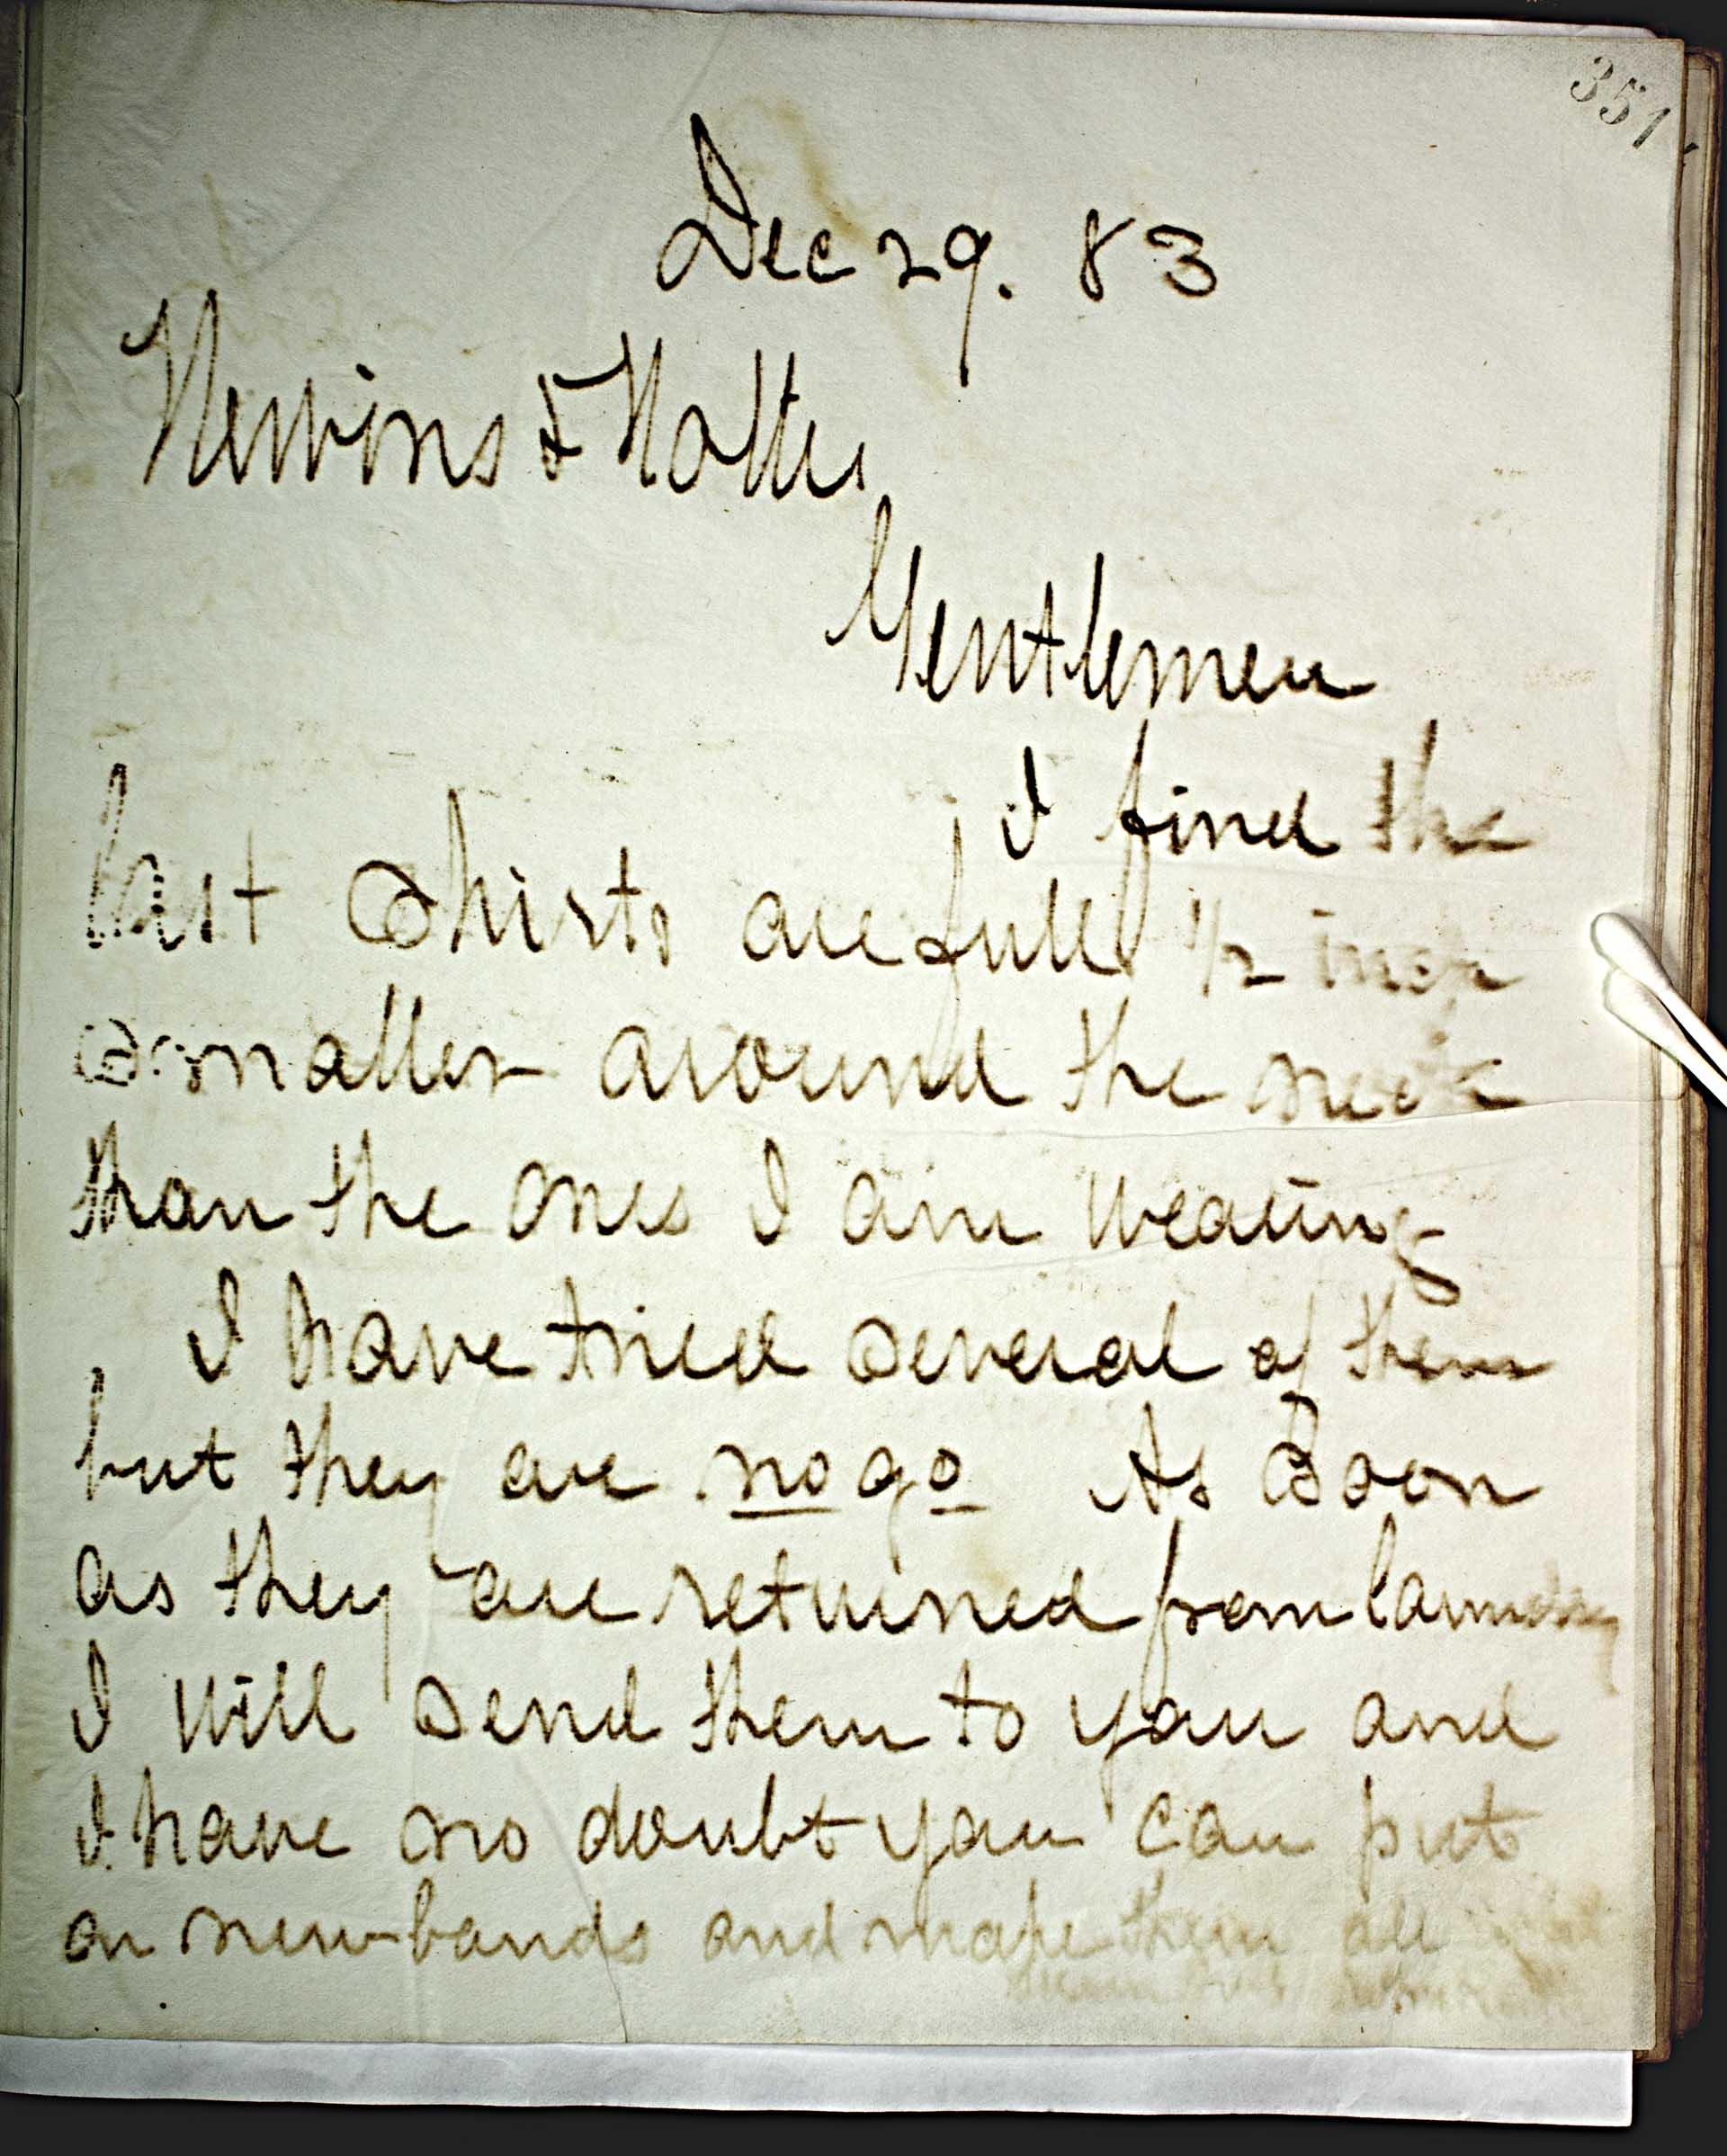 351
Dec 29. 83
Nevins &
Gentlemen
I find the
last Shirts are full 1/2 inch
Smaller around the neck
than the ones I am wearing
I have tried several of them
but they are no go As Soon
as they are returned from laundry
I will send them to you and
I have no doubt you can put
on new bands and make them all